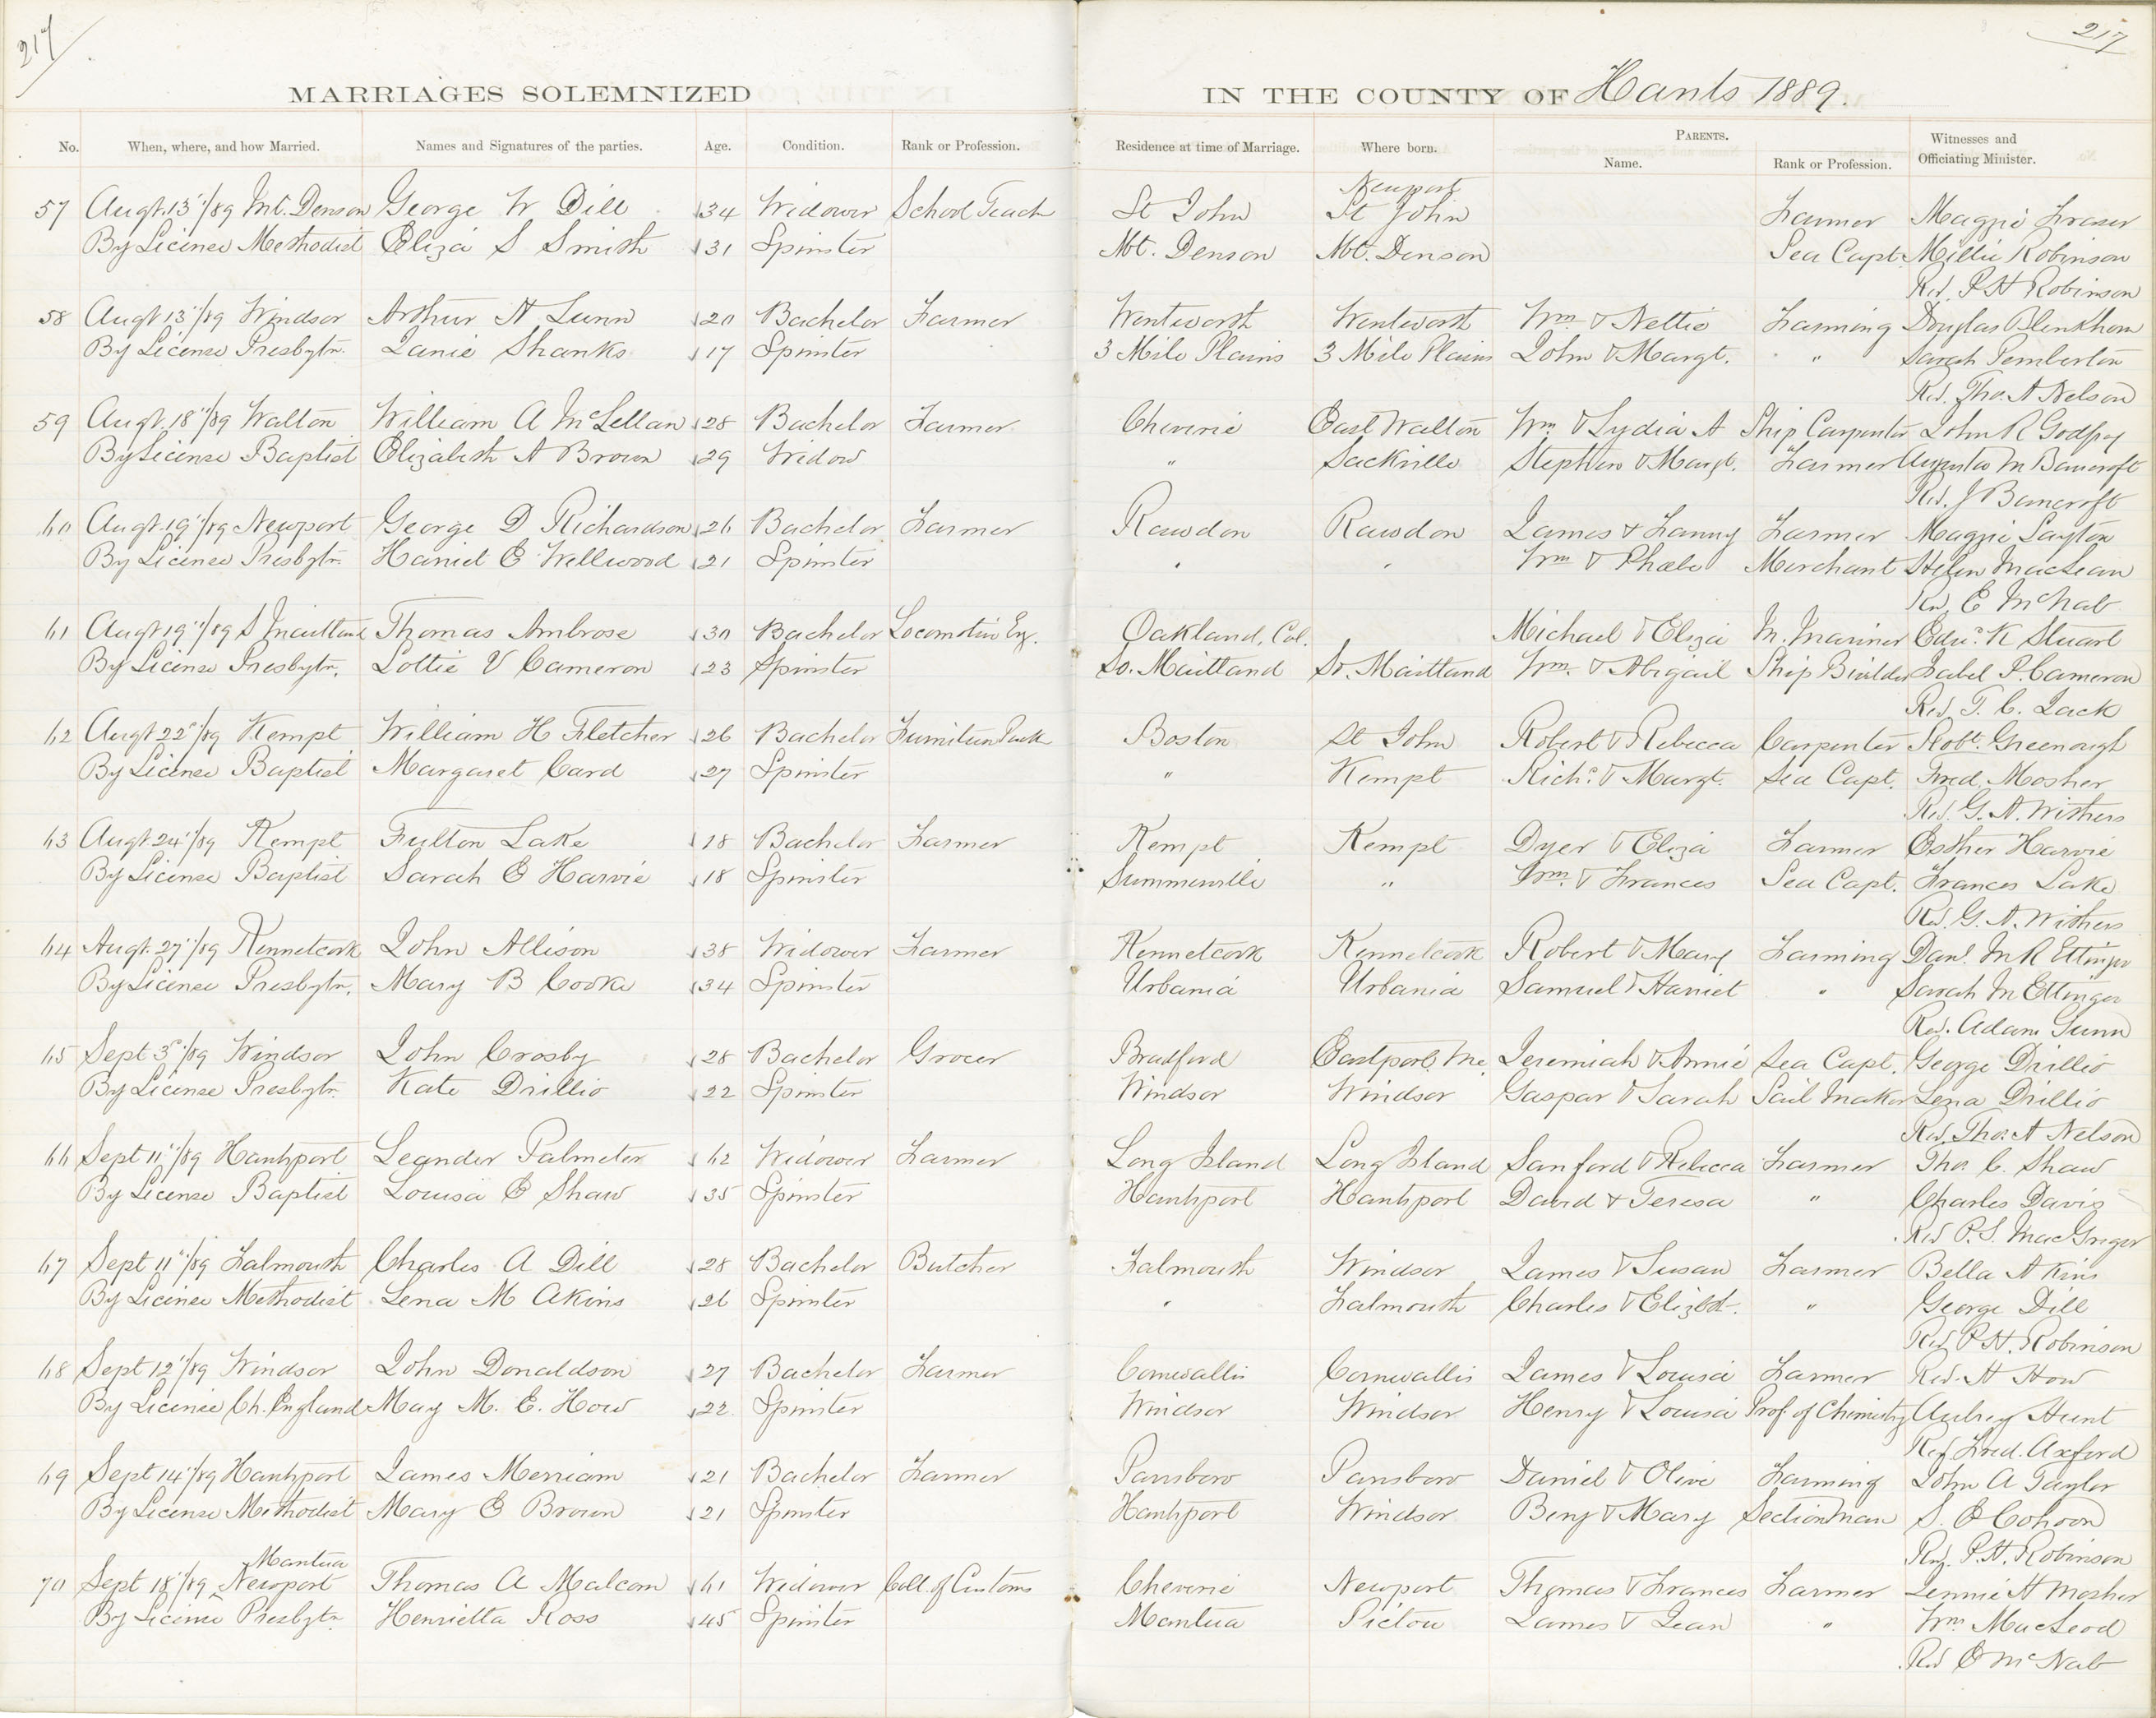 217 217
MARRIAGES SOLEMNIZED IN THE COUNTY OF Hants 1889.
No. When, where, and how Married. Names and Signatures of the parties. Age. Condition. Rank or Profession. Residence at time of Marriage. Where born. PARENTS. Name. Rank or Profession. Witnesses and Officiating Minister.
Newport
57 Augt. 13"/89 Mt. Denson George W Dill 34 Widower School Teach St John St John Farmer Maggie Fraser
By License Methodist Eliza S Smith 31 Spinster Mt. Denson Mt. Denson Sea Capt. Millie Robinson
Rev. P H Robinson
58 Augt 13"/89 Windsor Arthur H Lunn 20 Bachelor Farmer Wentworth Wentworth Wm & Nettie Farming Douglas Blenkhorn
By License Presbytn. Janie Shanks 17 Spinster 3 Mile Plains 3 Mile Plains John & Margt. " Sarah Pemberton
Rev. Tho. A Nelson
59 Augt. 18"/89 Walton William A McLellan 28 Bachelor Farmer Cheverie East Walton Wm & Lydia A Ship Carpenter John R Godfrey
By License Baptist Elizabeth A Brown 29 Widow " Sackville Stephen & Margt. Farmer Augustus M Bancroft
Rev. J Bancroft
60 Augt. 19"/89 Newport George D Richardson 26 Bachelor Farmer Rawdon Rawdon James & Fanny Farmer Maggie Layton
By License Presbytn. Harriet E Wellwood 21 Spinster " " Wm & Phœbe Merchant Helen MacLean
Rev. E McNab
61 Augt 19"/89 S Maitland Thomas Ambrose 30 Bachelor Locomotive Eng. Oakland, Cal. Michael & Eliza M. Mariner Edwd. K Stuart
By License Presbytn. Lottie V Cameron 23 Spinster So. Maitland So. Maitland Wm. & Abigail Ship Builder Isabel P. Cameron
Rev. T. C. Jack
62 Augt 22"/89 Kempt William H Fletcher 26 Bachelor Furniture Pack Boston St John Robert & Rebecca Carpenter Robt. Greenough
By License Baptist Margaret Card 27 Spinster " Kempt Richd. & Margt. Sea Capt. Fred. Mosher
Rev. G. A. Withers
63 Augt 24"/89 Kempt Fulton Lake 18 Bachelor Farmer Kempt Kempt Dyer & Eliza Farmer Esther Harvie
By License Baptist Sarah E Harvie 18 Spinster Summerville " Wm. & Frances Sea Capt. Frances Lake
Rev. G. A. Withers
64 Augt. 27"/89 Kennetcook John Allison 38 Widower Farmer Kennetcook Kennetcook Robert & Mary Farming Danl. McR Ettinger
By License Presbytn. Mary B Cooke 34 Spinster Urbania Urbania Samuel & Harriet " Sarah M Ettinger
Rev. Adam Gunn
65 Sept 3"/89 Windsor John Crosby 28 Bachelor Grocer Bradford Eastport, Me. Jeremiah & Annie Sea Capt. George Drillio
By License Presbytn. Kate Drillio 22 Spinster Windsor Windsor Gaspar & Sarah Sail Maker Lena Drillio
Rev. Tho. A Nelson
66 Sept 11"/89 Hantsport Leander Palmeter 62 Widower Farmer Long Island Long Island Sanford & Rebecca Farmer Tho. C. Shaw
By License Baptist Louisa E Shaw 35 Spinster Hantsport Hantsport David & Teresa " Charles Davis
Rev P. S. MacGregor
67 Sept 11"/89 Falmouth Charles A Dill 28 Bachelor Butcher Falmouth Windsor James & Susan Farmer Bella Akins
By License Methodist Lena M Akins 26 Spinster " Falmouth Charles & Elizbt. " George Dill
Rev P H. Robinson
68 Sept 12"/89 Windsor John Donaldson 27 Bachelor Farmer Cornwallis Cornwallis James & Louisa Farmer Rev. H How
By License Ch. England May M. E. How 22 Spinster Windsor Windsor Henry & Louisa Prof. of Chemistry Aubrey Hunt
Rev Fred. Axford
69 Sept 14"/89 Hantsport James Merriam 21 Bachelor Farmer Parrsboro Parrsboro Daniel & Olive Farming John A Taylor
By License Methodist Mary E Brown 21 Spinster Hantsport Windsor Benj & Mary Section Man S. E Cohoon
Rev. P. H. Robinson
Mantua
70 Sept 18"/89 Newport Thomas A Malcom 61 Widower Coll. of Customs Cheverie Newport Thomas & Frances Farmer Jennie H Mosher
By License Presbytn. Henrietta Ross 45 Spinster Mantua Pictou James & Jean " Wm MacLeod
Rev E McNab